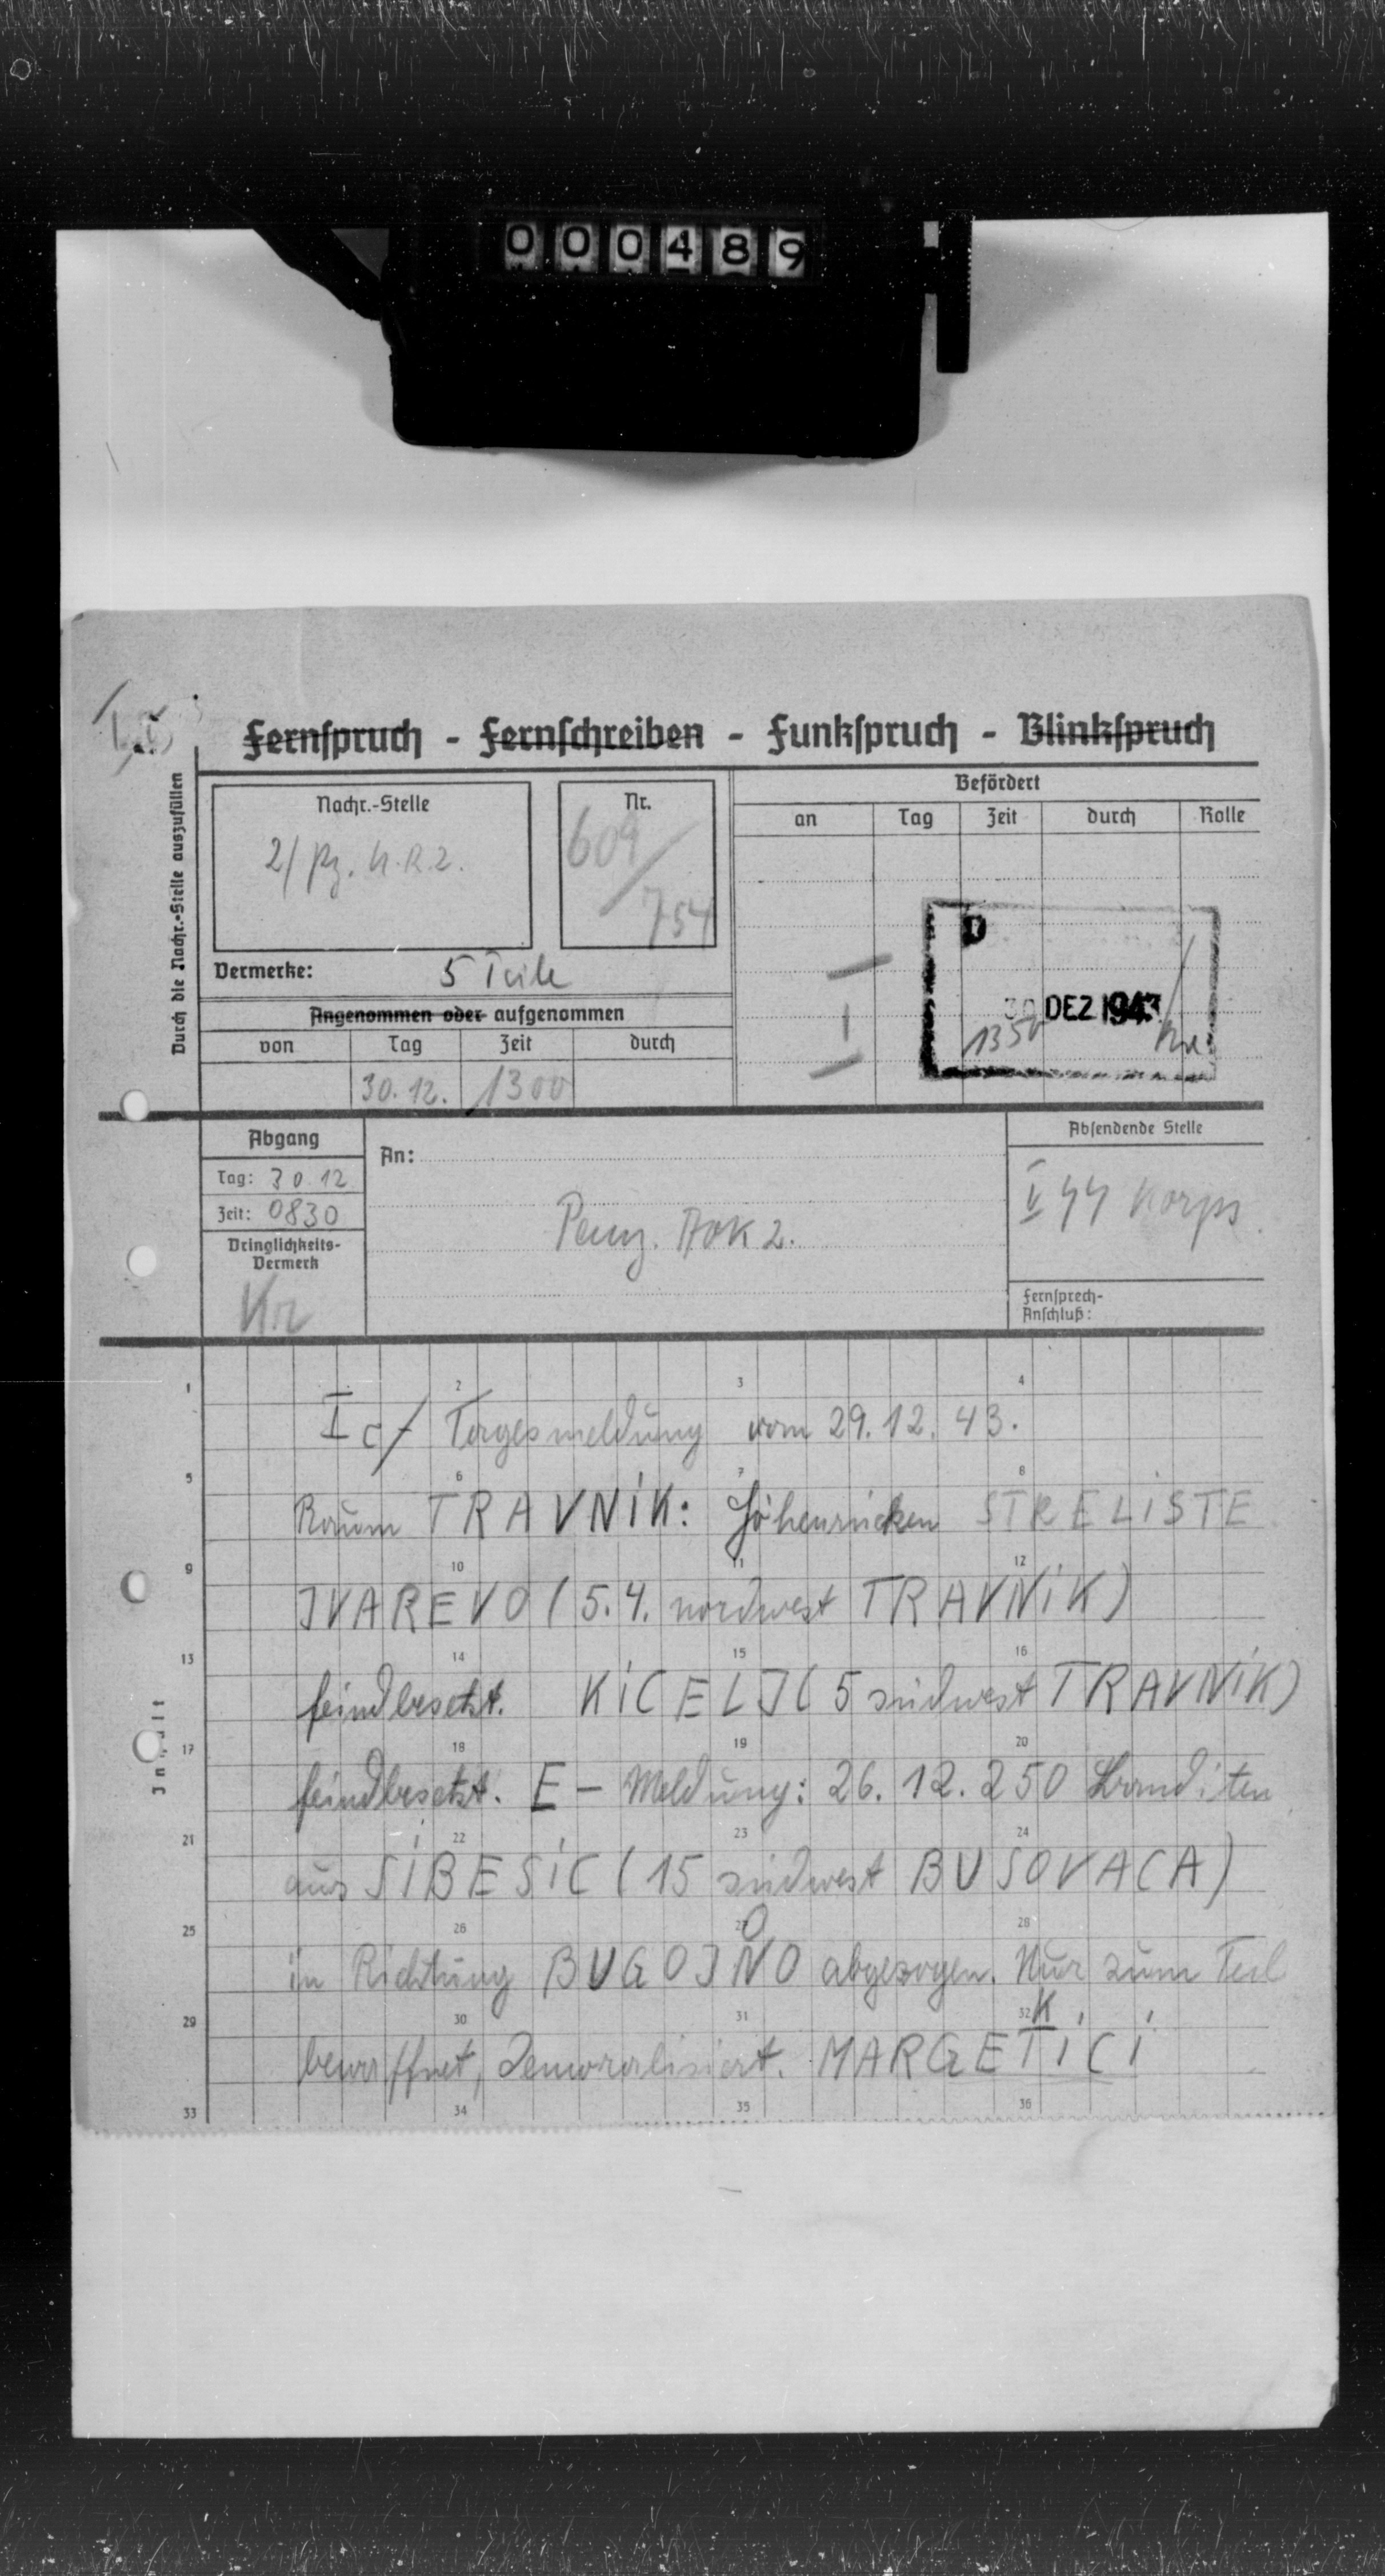 000489
Fernspruch - Fernschreiben - Funkspruch - Blinkspruch
Durch die Nachr.-Stelle auszufüllen
Nachr.-Stelle
2/ Pz. N.R.2.
Nr.
609/
754
Befördert
an Tag Zeit durch Rolle
Vermerke: 5 Teile
30 DEZ 1943
1350
Angenommen oder aufgenommen
von Tag Zeit durch
30.12. 1300
Abgang
Tag: 30.12
Zeit: 0830
Dringlichkeits-
Vermerk
Kr
An:
Panz. AOK 2.
Absendende Stelle
V SS Korps
Fernsprech-
Anschluß:
Inhalt
1 2 3 4
Ic/ Tagesmeldung vom 29.12.43.
5 6 7 8
Raum TRAVNiK: Höhenrücken STRELiSTE
9 10 11 12
JVAREVO (5.4. nordwest TRAVNiK)
13 14 15 16
feindbesetzt. KiCELJ (5 südwest TRAVNiK)
17 18 19 20
feindbesetzt. E - Meldung: 26.12. 250 Banditen
21 22 23 24
aus SiBESiC (15 südwest BUSOVACA)
25 26 27 28
in Richtung BUGOJNO abgezogen. Nur zum Teil
29 30 31 32
K
bewaffnet, Demoralisiert. MARGETiCi
33 34 35 36